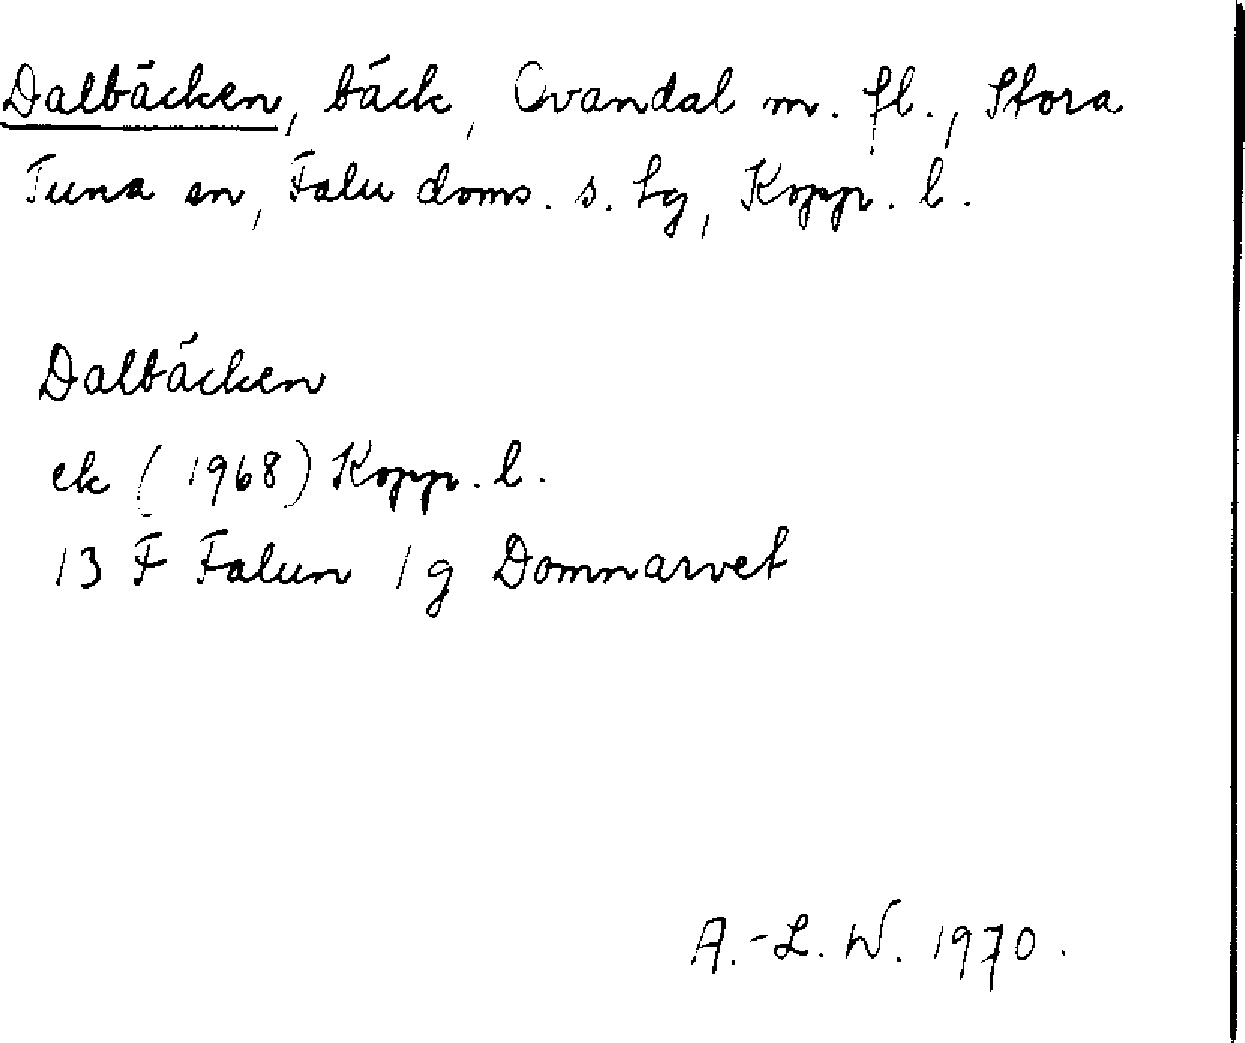 Dalbäcken, bäck, Ovandal m. fl., Stora
Tuna sn, Falu doms. s. tg, Kopp. l.
Dalbäcken
ek (1968) Kopp. l.
13 F Falun 1 g Domnarvet
A.-L. W. 1970.